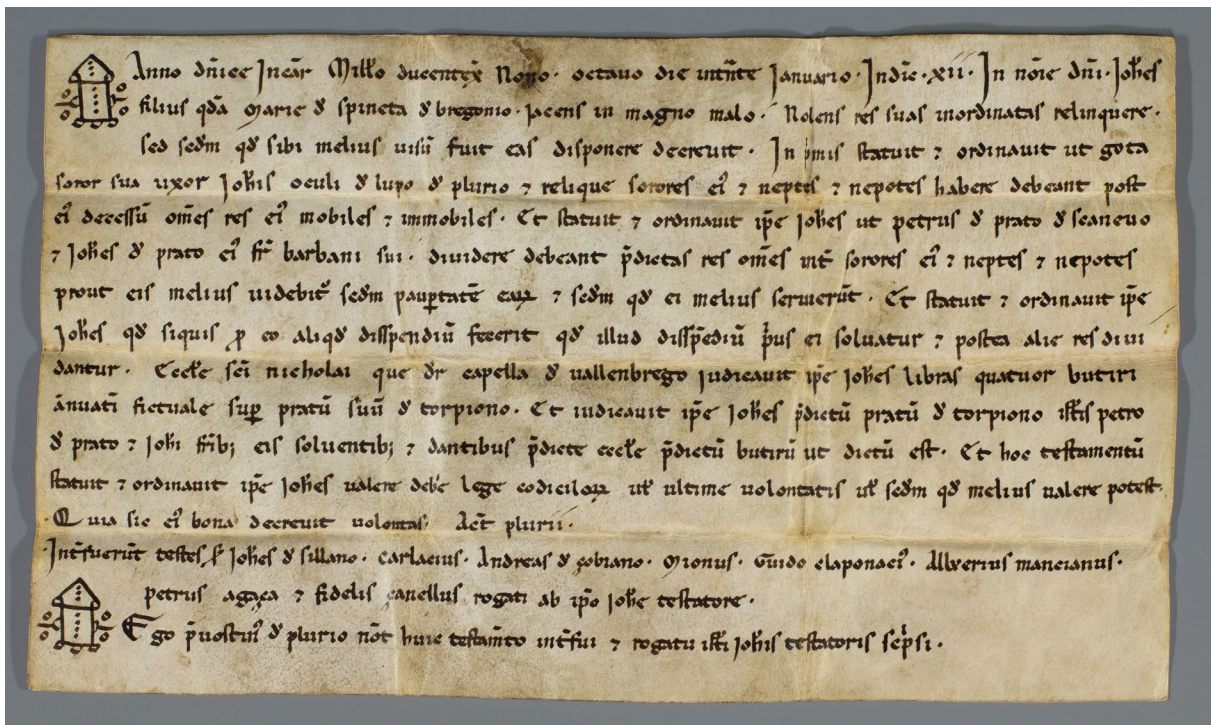 Anno dn̄ice Incar̄ Mill̄o ducentex̄ Nono · octauo die intn̄te Ianuario · Indic̄ · xii · In nōie dn̄i · Ioh̄es
filius qd̄a Marie đ spineta đ bregonio · Iacens in magno malo · Nolens res suas inordinatas relinquere ·
sed sedm̄ qđ sibi melius uisū fuit eas disponere decreuit · In p̄mis statuit ⁊ ordinauit ut gota
soror sua uxor Ioh̄is oculi đ lupo đ plurio ⁊ relique sorores ei᾽ ⁊ neptes ⁊ nepotes habere debeant post
ei᾽ decessū om̄es res ei᾽ mobiles ⁊ immobiles · Et statuit ⁊ ordinauit ip̄e Ioh̄es ut petrus đ prato đ sceaneuo
⁊ Ioh̄es đ prato ei᾽ fr̄ barbani sui · diuidere debeant p̄dictas res om̄es int̄ sorores ei᾽ ⁊ neptes ⁊ nepotes
prout eis melius uidebit᾽ sedm̄ paup̲tatē eaꝝ ⁊ sedm̄ qđ ei melius seruierūt · Et statuit ⁊ ordinauit ip̄e
Ioh̄es qđ siquis ꝓ eo aliqđ disspendiū fecerit qđ illud disspēdiū p̄us ei soluatur ⁊ postea alie res diui
dantur · Eccl̄e sc̄i nicholai que dr̄ capella đ uallenbrego iudicauit ip̄e Ioh̄es libras quatuor butiri
ānuatī fictuale sup̲ pratū suū đ torpiono · Et iudicauit ip̄e Ioh̄es p̄dictū pratū đ torpiono ist̄is petro
đ prato ⁊ Ioh̄i fr̄ib; eis soluentib; ⁊ dantibus p̄dicte eccl̄e p̄dictū butirū ut dictū est · Et hoc testamentū
statuit ⁊ ordinauit ip̄e Ioh̄es ualere deb̄e lege codiciloꝝ ul̄ ultime uolontatis ul̄ sedm̄ qđ melius ualere potest ·
Quia sic ei᾽ bona decreuit uolontas · Act̄ plurii ·
Int̄fuerūt testes Ioh̄es đ sillano · Carlacius · Andreas đ çobiano · Mionus · Guido claponaci᾽ · Albxerius mancianus ·
petrus agaça ⁊ fidelis çanellus rogati ab ip̄o Ioh̄e testatore ·
Ego p̄uostin᾽ đ plurio nōt huic testam̄to int̄fui ⁊ rogatu ist̄i Ioh̄is testatoris scp̄si ·